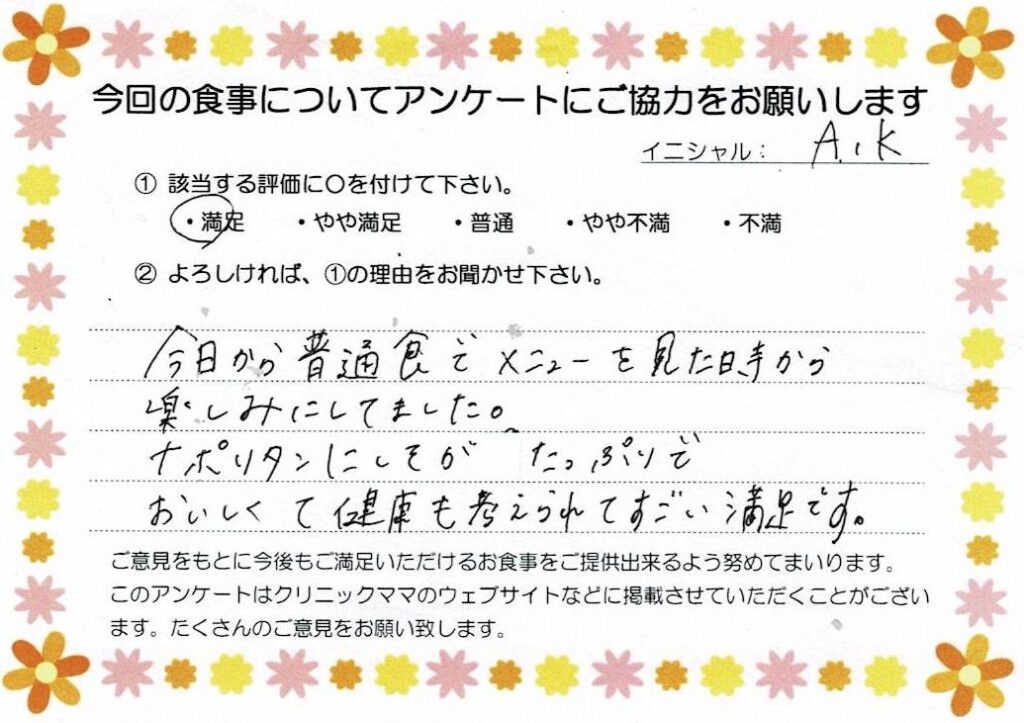 今回の食事についてアンケートにご協力をお願いします
イニシャル： A.K
① 該当する評価に〇を付けて下さい。
・満足 ・やや満足 ・普通 ・やや不満 ・不満
② よろしければ、①の理由をお聞かせ下さい。
今日から普通食でメニューを見た時から
楽しみにしてました。
ナポリタンにしそが たっぷりで
おいしくて健康も考えられてすごい満足です。
ご意見をもとに今後もご満足いただけるお食事をご提供出来るよう努めてまいります。
このアンケートはクリニックママのウェブサイトなどに掲載させていただくことがござい
ます。たくさんのご意見をお願い致します。